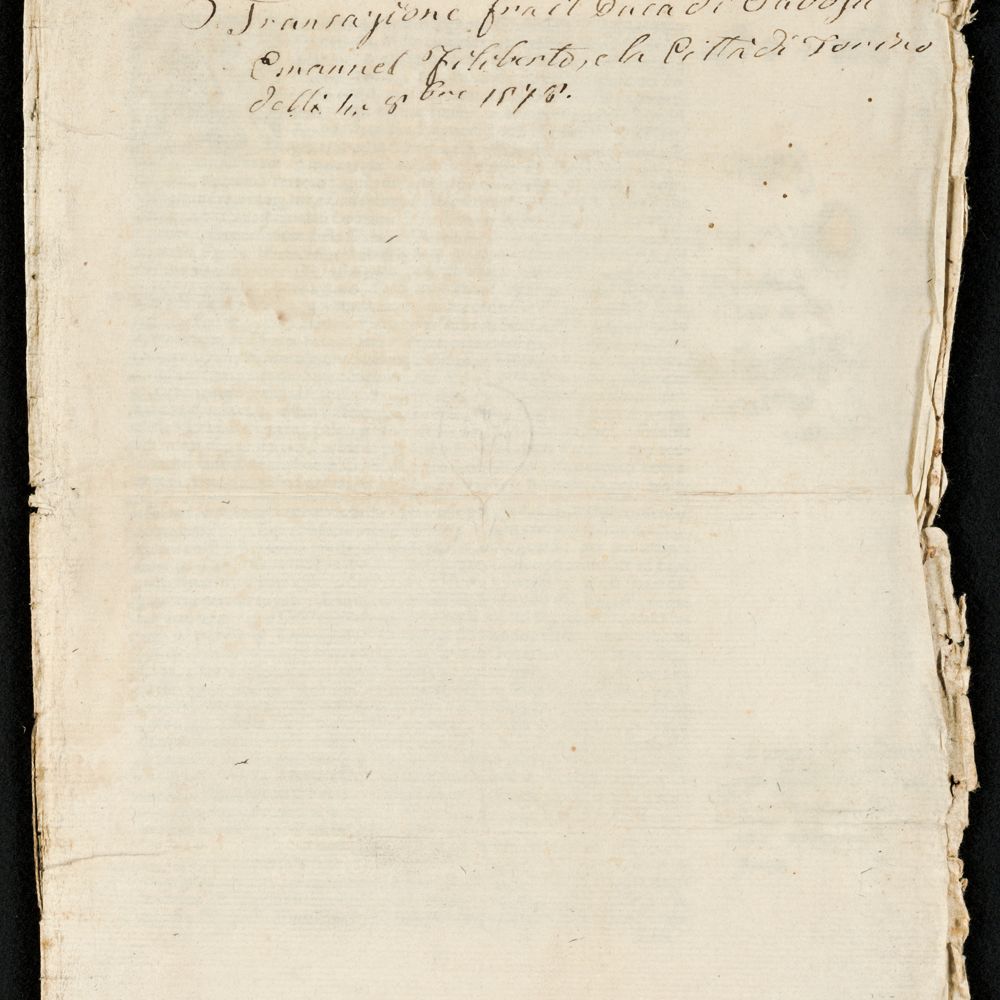 Transazione fra il Duca di Savoja
Emanuel Filiberto, e la Città di Torino
delli 4 8bre 1578.